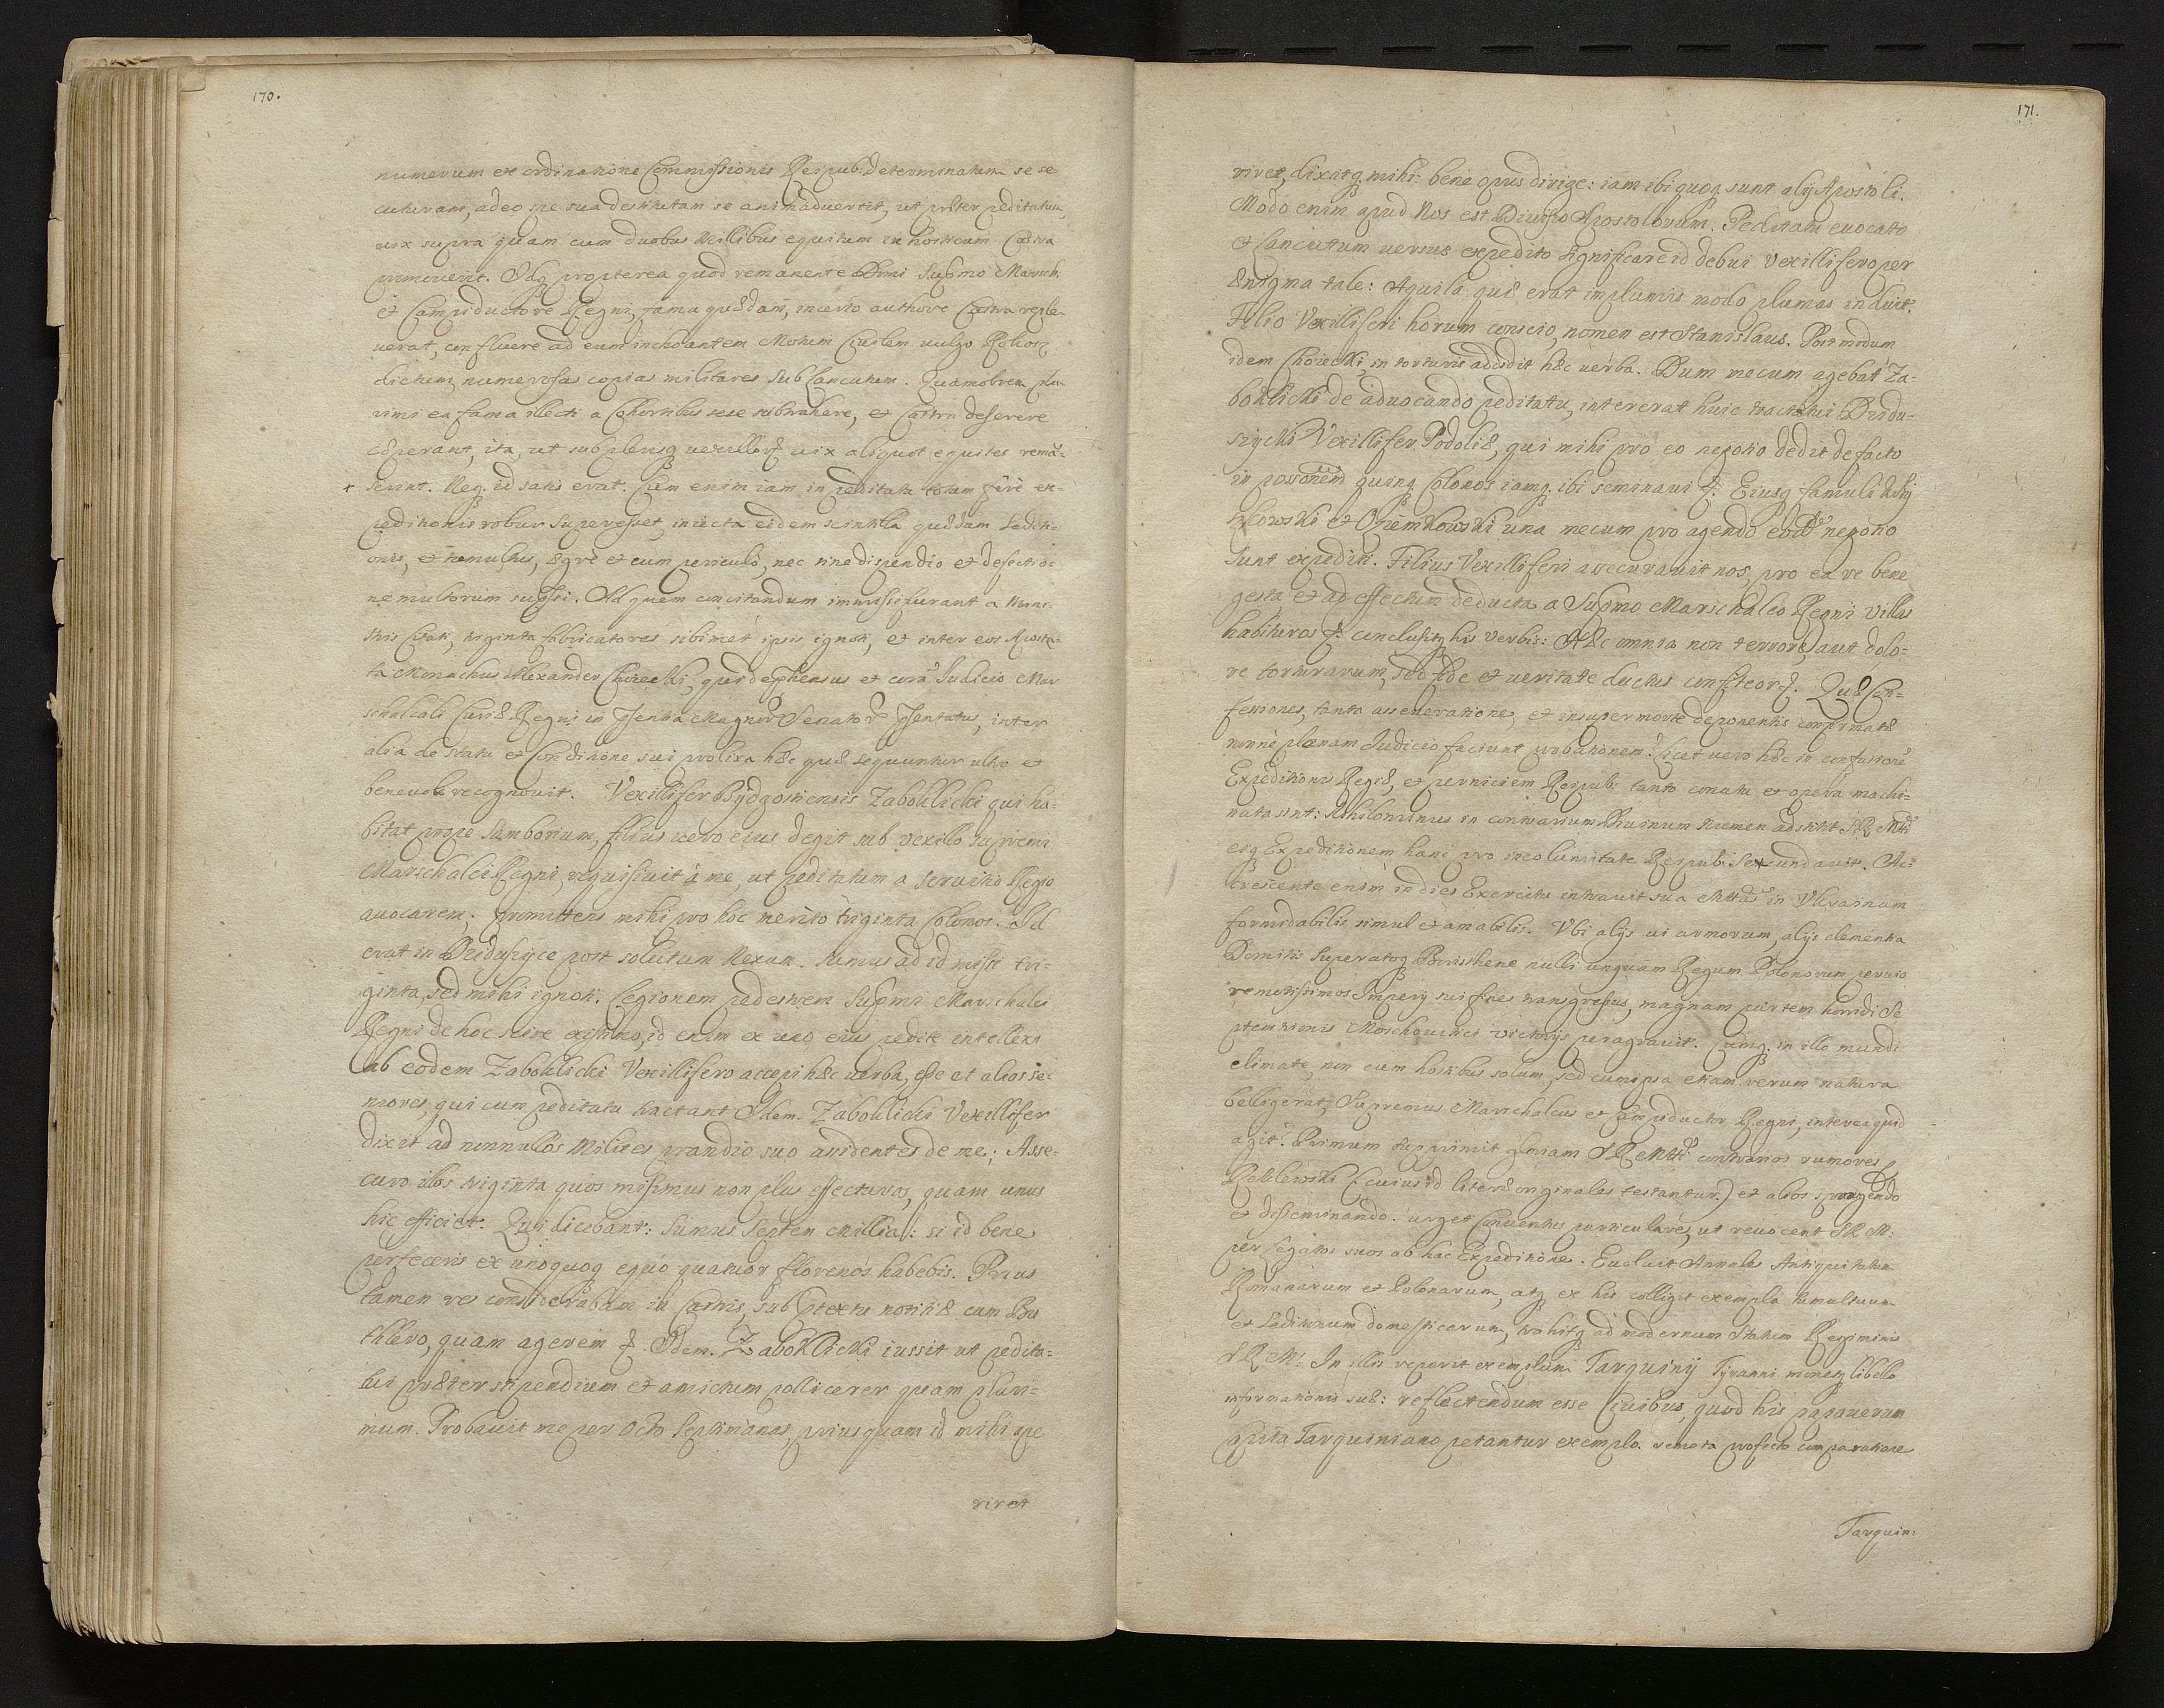 170.
numerum ex ordinatione Commissionis Reipub: determinatum se se-
cuturam, adeo spe sua destitutam se animaduertit, ut præter peditatum,
uix supra quam cum duobus Millibus equitum in hosticum Castra
promouerit. Idq propterea quod remanente Domi Supmo Marsch:
et Campiductore Regni, fama quædam, incerto authore Castra reple-
uerat, confluere ad eum inchoantem Motum Ciuilem uulgo Rokosz
dictum, numerosas copias militares sub Lancutum. Quamobrem plu-
rimi ea fama illecti a Cohortibus sese subtrahere, et Castra deserere
cæperant, ita, ut sub plerisq uexillor uix aliquot equites reman-
+ serint. Neq. id satis erat. Cum enim iam in peditatu totum ferè ex-
peditionis robur superesset, iniecta eidem scintilla quædam Sediti-
onis, et tumultus, ægrè et cum periculo, nec sine dispendio et defectio-
ne multorum sugssi. Ad quem concitandum immissi fuerant a
stris Castti, triginta fabricatores sibimet ipsis ignoti, et inter eos Aposta-
ta Monachus Alexander Choiecki, qui dephensus et corã Iudicio Mar
schalcali Curiæ Regni in Psentia Magnor Senator Psentatus, inter
alia de statu et Conditione sui prolixa hæc quæ sequuntur ultro et
beneuole recognouit. Vexillifer Bydgostiensis Zaboklicki qui ha-
bitat prope Samborium, filius uero eius degit sub vexillo supremi
Marschalci Regni, requisiuit à me, ut peditatum a seruitio Regio
auocarem; promittens mihi pro hoc merito triginta Colonos. Id
erat in Dziduszyce post solutum Nexum. Sumus ad id missi tri-
ginta, sed mihi ignoti. Legionem pedestrem Supmi Marschalci
Regni de hoc scire existimo, id enim ex uno eius pedite intellexi
ab eodem Zaboklicki Vexillifero accepi hæc uerba, esse et alios se-
niores, qui cum peditatu tractant. Idem Zaboklicki Vexillifer
dixit ad nonnullos Milites prandio suo assidentes de me; Asse-
curo illos triginta quos misimus non plus effecturos, quam unus
hic efficiet. Qui dicebant: sumus septem Millia: si id bene
perfeceris ex unoquoq equo quatuor florenos habebis. Prius
tamen res considerabam in Castris, sub Ptextu notitiæ cum Bu
tklero, quam agerem &. Idem. Zaboklicki iussit ut pedita-
tui præter stipendium et amictum pollicerer quam pluri-
mum. Probauit me per octo septimanas, priusquam id mihi ape
riret
171.
riret, dixitq. mihi: bene opus dirige: iam ibi quoq. sunt alij Apostoli.
Modo enim apud Nos est Diuisio Apostolorum. Peditatu euocato
et Lancutum uersus expedito significare id debui Vexillifero per
Ænigma tale: Aquila quæ erat implumis modo plumas induit.
Filio Vexilliferi horum conscio, nomen est Stanislaus. Postmodum
idem Choiecki, in torturis addidit hæc uerba. Dum mecum agebat Za-
boklicki de aduocando peditatu, intererat huic tractatui Dzidu-
szycki Vexillifer Podoliæ, qui mihi pro eo negotio dedit de facto
in possonem quinq Colonos iamq. ibi seminaui &. Eiusq famuli
kowski et Opiemkowski una mecum pro agendo eodẽ negotio
sunt expediti. Filius Vexilliferi assecurauit nos, pro ea re bene
gesta et ad effectum deducta a Supmo Marschalco Regni villas
habituros &. conclusitq his verbis: Hæc omnia non terrore, aut dolo-
re torturarum, sed fide et ueritate ductus confiteor &. Quæ Con-
fessiones, tanta asseueratione, et insuper morte deponentis confirmatæ
nonne planam Iudicio faciunt probationem? Licet uero hæc in confusione
Expeditionis Regiæ, et perniciem Reipub: tanto conatu et opera machi-
nata sint: Nihilominus in contrarium Diuinum Numen adstitit S R Mtti
eiq Expeditionem hanc pro incolumitate Reipub: Secundauit. Ac-
crescente enim in dies Exercitu intrauit sua Mttas in Ukrainam
formidabilis simul et amabilis. Vbi alijs ui armorum, alijs clementia
Domitis Superatoq Boristhene nulli unquam Regum Polonorum peruio
remotissimos Imperij sui fines transgressus, magnam partem horridi Se
ptentrionis Moschouitici victorijs peragrauit. Cumq. in illo mundi
climate, non cum hostibus solum, sed cum ipsa etiam rerum natura
belligerat, Supremus Marschalcus et Campiductor Regni, interea quid
agit? Primum supprimit gloriam S R Mttis contrarios rumores p
Reklewski (cuius id literæ originales testantur) et alios spargendo
et disseminando. urget Conuentus particulares, ut reuocent S R M:
per legatos suos ab hac Expeditione. Euoluit Annales Antiquitatum
Romanarum et Polonarum, atq ex his colligit exempla tumultuum
et Seditionum domesticarum, trahitq ad modernum Statum Regiminis
S R M: In illis reperit exemplum Tarquinij Tyranni monetq libello
informationis suæ: reflectendum esse Ciuibus, quod his papauerum
capita Tarquiniano petantur exemplo. remota profecto comparatione
Tarquin: